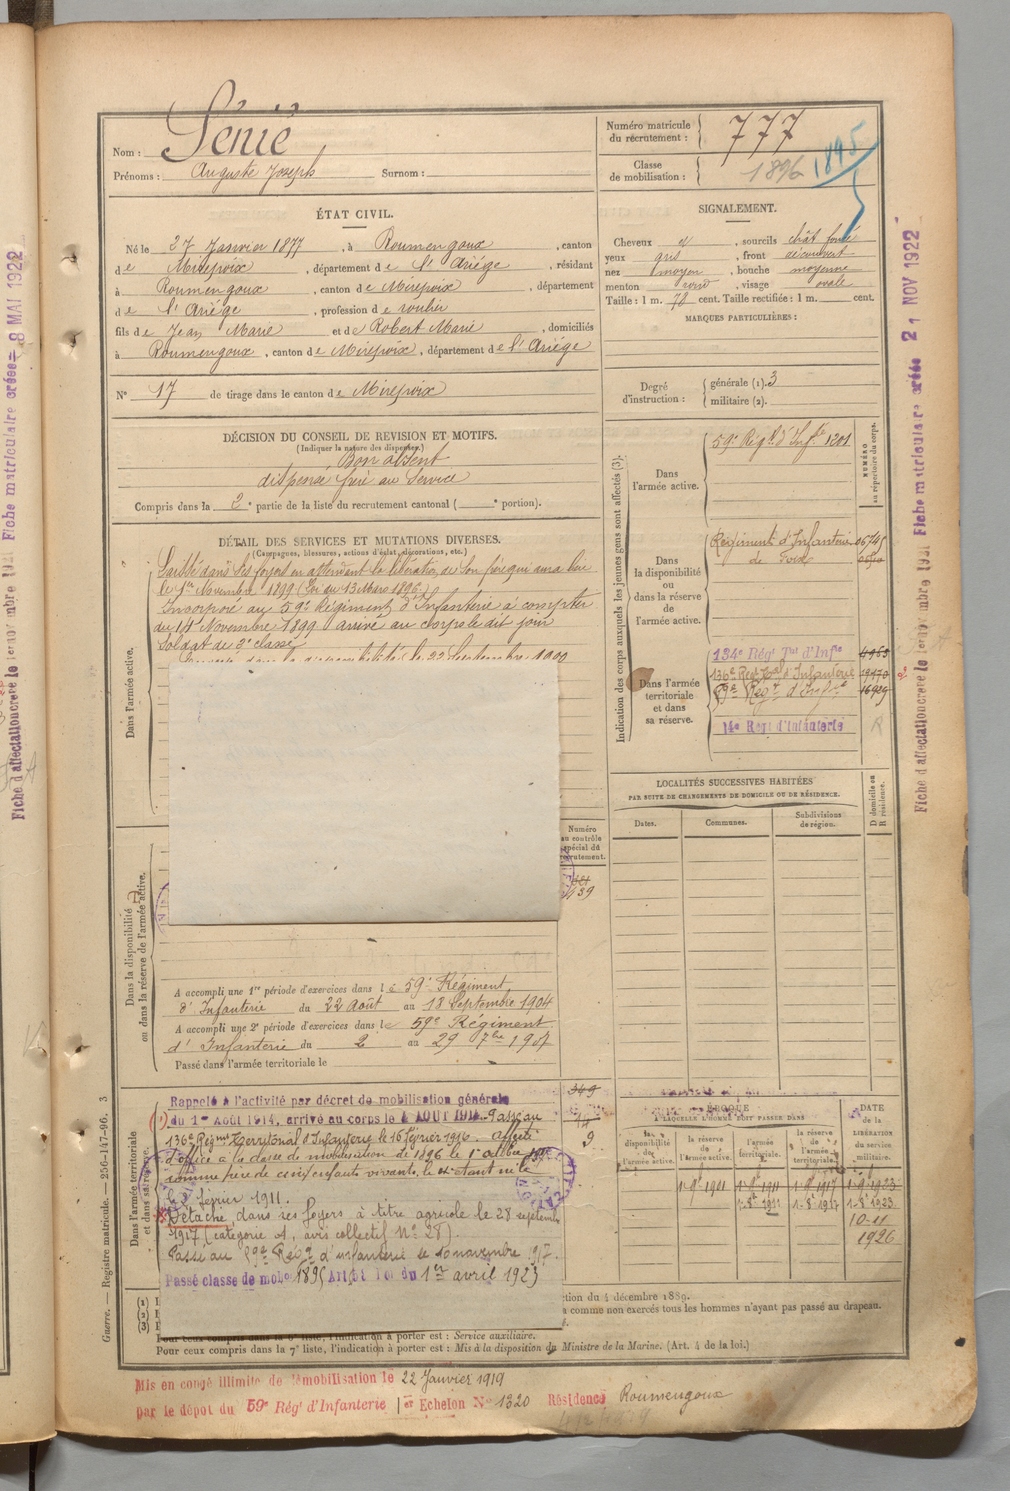 Nom : Sénié
Prénoms : Auguste Joseph Surnom :
Numéro matricule du recrutement : 777
Classe de mobilisation : 1896 1895
ÉTAT CIVIL.
Né le 27 Janvier 1877, à Roumengoux, canton
de Mirepoix, département de l'Ariége, résidant
à Roumengoux, canton de Mirepoix, département
de l'Ariége, profession de roulier
fils de Jean Marie et de Robert Marie, domiciliés
à Roumengoux, canton de Mirepoix, département de l'Ariége
N° 17 de tirage dans le canton de Mirepoix
SIGNALEMENT.
Cheveux et, sourcils chât foncé
yeux gris, front découvert
nez moyen, bouche moyenne
menton rond, visage ovale
Taille : 1 m. 70 cent. Taille rectifiée : 1 m. cent.
MARQUES PARTICULIÈRES :
Degré d'instruction : générale (1). 3
militaire (2).
DÉCISION DU CONSEIL DE REVISION ET MOTIFS.
(Indiquer la nature des dispenses.)
Bon absent
dispensé frère au Service
Compris dans la 2e partie de la liste du recrutement cantonal ( e portion).
DÉTAIL DES SERVICES ET MUTATIONS DIVERSES.
(Campagnes, blessures, actions d'éclat, décorations, etc.)
Dans l'armée active.
Laissé dans ses foyers en attendant la libération de son frère qui aura lieu
le 1er Novembre 1899 (Loi du 13 Mars 1896)
Incorporé au 59e Régiment d'Infanterie à compter
du 14 Novembre 1899 arrivé au corps le dit jour
Soldat de 2e classe
dans la disponibilité le 22 Septembre 1900
Numéro au contrôle spécial du recrutement.
139
Dans la disponibilité ou dans la réserve de l'armée active.
A accompli une 1re période d'exercices dans le 59e Régiment
d'Infanterie du 22 Août au 18 Septembre 1904
A accompli une 2e période d'exercices dans le 59e Régiment
d'Infanterie du 2 au 29 7bre 1907
Passé dans l'armée territoriale le
Dans l'armée territoriale et dans sa réserve.
Rappelé à l'activité par décret de mobilisation générale
du 1er Août 1914, arrivé au corps le 4 AOUT 1914. Passé au
136e Régmt Territorial d'Infanterie le 16 février 1916. affecté
d'office à la classe de mobilisation de 1896 le 1er octobre
comme père de cinq enfants vivants, le 4e étant né le
février 1911.
Détaché dans ses foyers à titre agricole le 28 septembre
1917 (catégorie A, avis collectif N° 28).
Passé au 59e Régt d'infanterie le 10 novembre 1917.
Passé classe de mobon 1895 Art. Loi du 1er avril 1923
349
9
Indication des corps auxquels les jeunes gens sont affectés (3).
NUMÉRO au répertoire du corps.
Dans l'armée active.
59e Régt d'Infie 1201
Dans la disponibilité ou dans la réserve de l'armée active.
Régiment d'Infanterie 06745
de Foix
Dans l'armée territoriale et dans sa réserve.
134e Régt Tal d'Infie
136e Régt Tal d'Infanterie
59e Régt d'Infie 16929
14e Régt d'Infanterie
LOCALITÉS SUCCESSIVES HABITÉES
PAR SUITE DE CHANGEMENTS DE DOMICILE OU DE RÉSIDENCE.
Dates. Communes. Subdivisions de région. D domicile ou R résidence.
ÉPOQUE
A LAQUELLE L'HOMME DOIT PASSER DANS
DATE de la LIBÉRATION du service militaire.
la disponibilité de l'armée active. la réserve de l'armée active. l'armée territoriale. la réserve de l'armée territoriale.
1-9bre 1901 1-9bre 1911 1-9bre 1917 1-9bre 1923
1-8bre 1911 1-8bre 1917 1-8bre 1923
10-11
1926
(1)
(2)
(3)
ction du 4 décembre 1889.
a comme non exercés tous les hommes n'ayant pas passé au drapeau.
Pour ceux compris dans la 6e liste, l'indication à porter est : Service auxiliaire.
Pour ceux compris dans la 7e liste, l'indication à porter est : Mis à la disposition du Ministre de la Marine. (Art. 4 de la loi.)
Mis en congé illimité de démobilisation le 22 Janvier 1919
par le dépot du 59e Régt d'Infanterie 1er Echelon N° 1320 Résidence Roumengoux
Guerre. — Registre matricule. — 256-147-96. 3
Fiche matriculaire créée 8 MAI 1922
Fiche d'affectation créée le 1er novembre 19
Fiche matriculaire créée 21 NOV 1922
Fiche d'affectation créée le 1er novembre 19